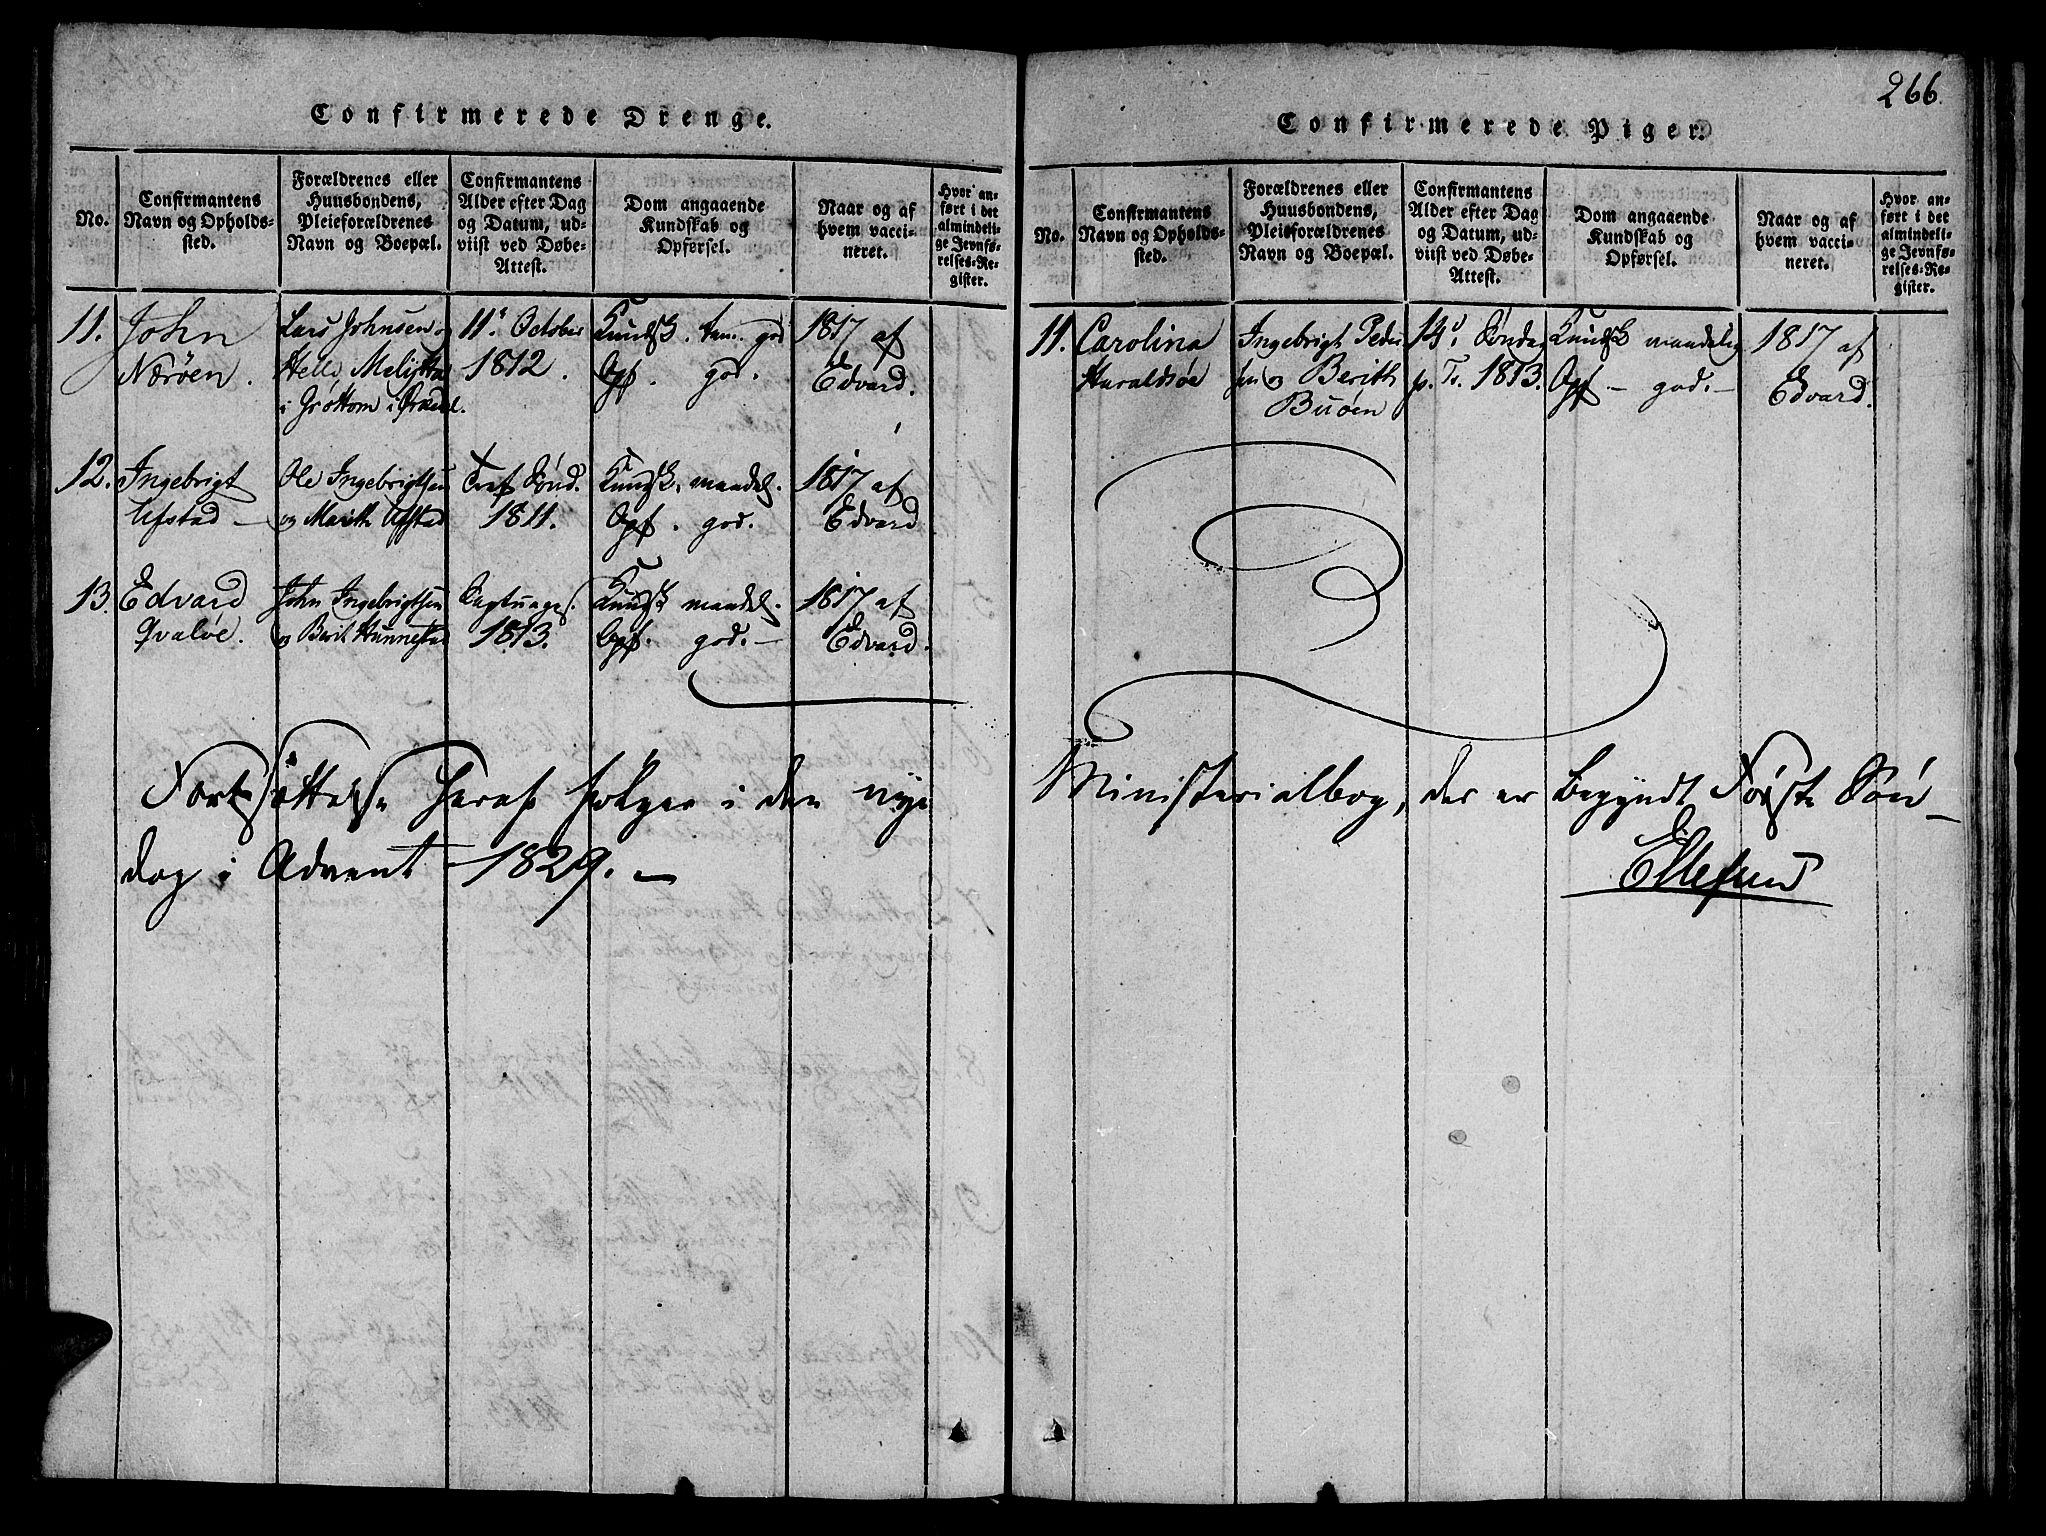 266.
Confirmerede Drenge.
No.
Confirmantens
Navn og Opholds-
sted.
Forældrenes eller
Huusbondens,
Pleieforældrenes
Navn og Boepæl.
Confirmantens
Alder efter Dag
og Datum, ud-
viist ved Døbe-
Attest.
Dom angaaende
Kundskab og
Opførsel.
Naar og af
hvem vacci-
neret.
Hvor an-
ført i det
almindeli-
ge Jevnfø-
relses-Re-
gister.
11.
John
Nærøen.
Lars Johnsen
i Grøttem i
11. October
1812.
Kundsk. god
Opf. god.
1817 af
Edvard.
12.
Ingebrigt
Ufstad
Ole Ingebrigtsen
og Marith Ufstad
Sønd.
1811.
Kundsk. maadel.
Opf. god.
1817 af
Edvard
13.
Edvard
Qvaløe.
John Ingebrigtsen
og Berit Hunnestad
Septuages.
1813.
Kundsk. maadel.
Opf. god. -
1817 af
Edvard.
Confirmerede Piger.
No.
Confirmantens
Navn og Opholds-
sted.
Forældrenes eller
Huusbondens,
Pleieforældrenes
Navn og Boepæl.
Confirmantens
Alder efter Dag
og Datum, ud-
viist ved Døbe-
Attest.
Dom angaaende
Kundskab og
Opførsel.
Naar og af
hvem vacci-
neret.
Hvor an-
ført i det
almindeli-
ge Jevnfø-
relses-Re-
gister.
11.
Carolina
Haraldsøe
Ingebrigt Peder
sen og Berith
Buøen
14. Søndag
p. Tr. 1813.
Kundsk maadelig
Opf - god. -
1817 af
Edvard.
Fortsættelse heraf følger i den nye Ministerialbog, der er begyndt Første Søn-
dag i Advent 1829. -
Ellefsen